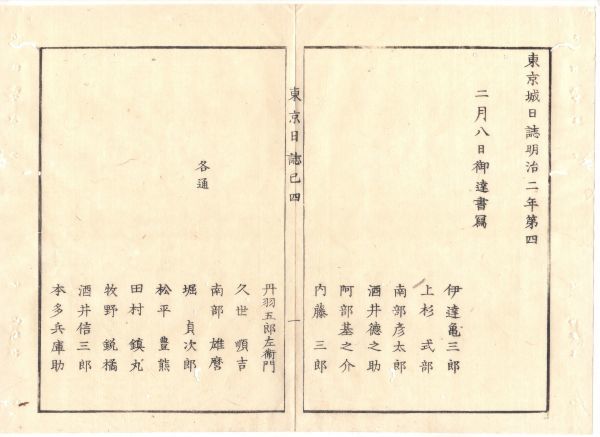 東京城日誌明治二年第四
二月八日御達書寫
伊達亀三郎
上杉式部
南部彦太郎
酒井徳之助
阿部基之介
内藤三郎
東京日誌己四
一
丹羽五郎左衛門
久世順吉
南部雄麿
堀貞次郎
松平豊熊
田村鎮丸
牧野鋭橘
酒井信三郎
本多兵庫助
各通